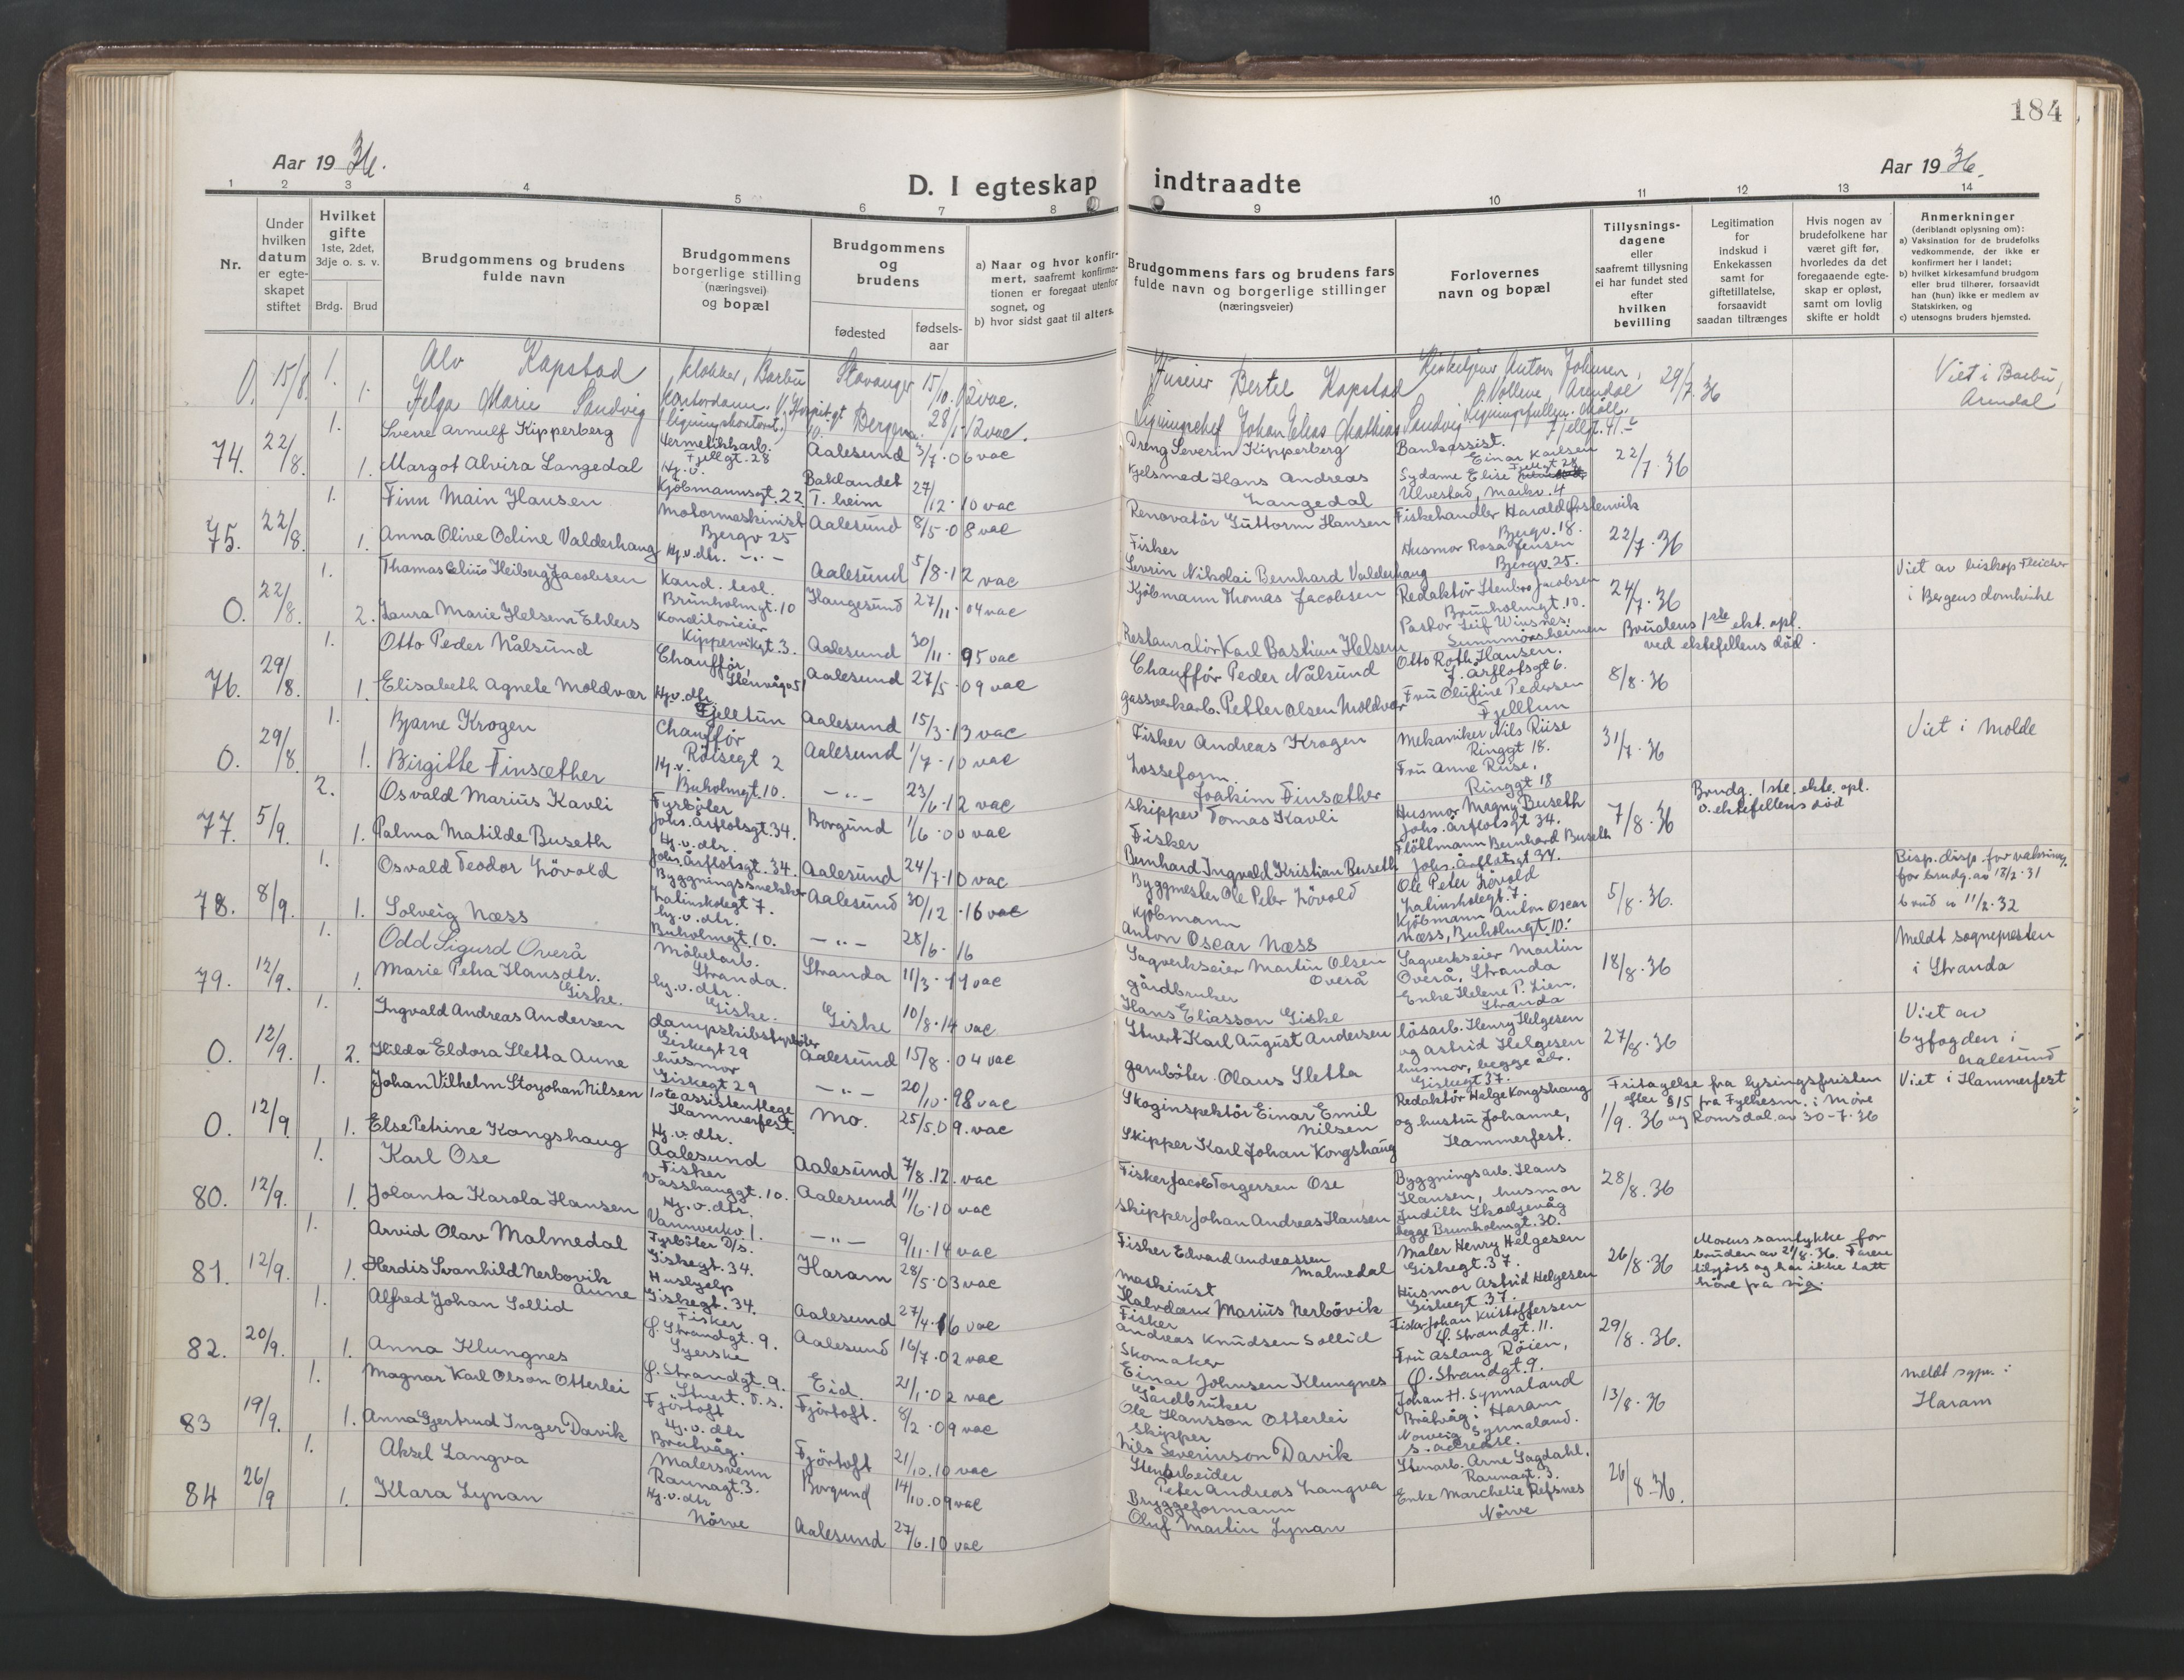 184
Aar 1936.
D. I egteskap indtraadte
Aar 1936.
1 2 3 4 5 6 7 8 9 10 11 12 13 14
Nr.
Under hvilken datum er egteskapet stiftet
Hvilket gifte 1ste, 2det, 3dje o. s. v.
Brdg. Brud
Brudgommens og brudens fulde navn
Brudgommens borgerlige stilling (næringsvei) og bopæl
Brudgommens og brudens
fødested
fødsels-aar
a) Naar og hvor konfirmert, saafremt konfirmationen er foregaat utenfor sognet, og
b) hvor sidst gaat til alters.
Brudgommens fars og brudens fars fulde navn og borgerlige stillinger (næringsveier)
Forlovernes navn og bopæl
Tillysningsdagene eller saafremt tillysning ei har fundet sted efter hvilken bevilling
Legitimation for indskud i Enkekassen samt for giftetillatelse, forsaavidt saadan tiltrænges
Hvis nogen av brudefolkene har været gift før, hvorledes da det foregaaende egteskap er opløst, samt om lovlig skifte er holdt
Anmerkninger (deriblandt oplysning om):
a) Vaksination for de brudefolks vedkommende, der ikke er konfirmert her i landet;
b) hvilket kirkesamfund brudgom eller brud tilhører, forsaavidt han (hun) ikke er medlem av Statskirken, og
c) utensogns bruders hjemsted.
0. 15/8. 1. Alv Kapstad klokker, Barbu Stavanger 15/10.02 vac. Huseier Bertel Kapstad Anton Johnsen, Arendal 29/7.36 Viet i Barbu, Arendal
1. Helga Marie Sandvig kontordame Bergen 28/1.12 vac. Johan Elias Mathias Sandvig
74. 22/8. 1. Sverre Arnulf Kipperberg Hermetikkarb. Fjellgt. 28 Aalesund 3/7.06 vac Dreng Severin Kipperberg Bankassist. Einar Karlsen Fjellgt 28 22/7.36
1. Margot Alvira Langedal Hj.v. Kjöbmannsgt. 22 Baklandet T.heim 27/12.10 vac Kjelsmed Hans Andreas Langedal Sydame Elise Ulvestad, Markv. 4
75. 22/8. 1. Finn Main Hansen Motormaskinist Bjergv 25 Aalesund 8/5.08 vac Renovatör Guttorm Hansen Fiskehandler Harald Bjergv. 18. 22/7.36
1. Anna Olive Odine Valderhaug Hj.v.dtr. -"- Aalesund 5/8.12 vac Fisker Sevrin Nikolai Bernhard Valderhaug Husmor Rosa Jensen Bjergv. 25.
0. 22/8. 1. Thomas Celius Heiberg Jacobsen Kand. teol. Brunholmgt. 10 Haugesund 27/11.04 vac Kjöbmann Thomas Jacobsen Redaktör Stenbro Jacobsen Brunholmgt. 10. 24/7.36 Viet av biskop Fleicher i Bergens domkirke
2. Laura Marie Helsem Ehlers Konditorieier Kippervikgt. 3. Aalesund 30/11.95 vac Restauratör Karl Bastian Helsem Pastor Leif Winsnes, Sunnmörsheimen Brudens 1ste ekt. opl. ved ektefellens död.
76. 29/8. 1. Otto Peder Nålsund Chauffför, Stenvågv 51 Aalesund 27/5.09 vac Chauffför Peder Nålsund Otto Roth Hansen. J. Årflotsgt 6. 8/8.36
1. Elisabeth Agnete Moldvær Hj.v.dtr. Fjelltun Aalesund 15/3.13 vac Gassverkarb. Petter Olsen Moldvær Fru Olufine Pedersen Fjelltun
0. 29/8. 1. Bjarne Krogen Chauffför Röisegt 2 Aalesund 1/7.10 vac Fisker Andreas Krogen Mekaniker Nils Riise Ringgt 18. 31/7.36 Viet i Molde
1. Birgitte Finsæther Hj.v. Buholmgt. 10. -"- 23/6.12 vac Losseform. Joakim Finsæther Fru Anne Riise, Ringgt 18
77. 5/9. 2. Osvald Marius Kavli Fyrböter Johs. Årflotsgt. 34. Borgund 1/6.00 vac Skipper Tomas Kavli Husmor Magny Buseth Johs. Årflotsgt 34. 7/8.36 Brudg. 1ste. ekte. opl. v. ektefellens död
1. Palma Matilde Buseth Hj.v.dtr. Johs. Årflotsgt. 34. Aalesund 24/7.10 vac Fisker Bernhard Ingvald Kristian Buseth Flöttmann Bernhard Buseth Johs. Årflotsgt 34.
78. 8/9. 1. Osvald Teodor Lövold Byggningssnekker Latinskolegt 7. Aalesund 30/12.16 vac Byggmester Ole Peter Lövold Ole Peter Lövold Latinskolegt. 7. 5/8.36. Bisp. disp. for vaksinasj. for brudg. av 18/2.31
1. Solveig Næss hj.v.dtr. Buholmgt. 10. -"- 28/6.16 Kjöbmann Anton Oscar Næss Kjöbmann Anton Oscar Næss, Buholmgt. 10. brud " 11/2.32
79. 12/9. 1. Odd Sigurd Överå Möbelarb. Stranda. Stranda 11/3.11 vac Sagverkseier Martin Olsen Överå Sagverkseier Martin Överå, Stranda 18/8.36 Meldt sogneprestén i Stranda
1. Marie Petra Hansdtr. Giske. hj.v.dtr. Giske. Giske 10/8.14 vac gårdbruker Hans Eliasson Giske Enke Helene P. Lien, Stranda
0. 12/9. 1. Ingvald Andreas Andersen dampskibsfyrböter Giskegt 29 Aalesund 15/8.04 vac Stuert Karl August Andersen lösarb. Henry Helgesen og Astrid Helgesen husmor, begge adr. Giskegt 37. 27/8.36 Viet av byfogden i Aalesund
2. Hilda Eldora Sletta Aune husmor Giskegt 29 -"- 20/10.98 vac garnböter Olaus Sletta
0. 12/9 1. Johan Vilhelm Storjohan Nilsen 1ste assistentlege Hammerfest. Mo. 25/5.09. vac Skoginspektör Einar Emil Nilsen Redaktör Helge Kongshaug og hustru Johanne, Hammerfest. 1/9.36 Fritagelse fra lysingsfristen efter §15 fra Fylkesm. i Möre og Romsdal av 30-7-36 Viet i Hammerfest
1. Else Petrine Kongshaug Hj.v.dtr. Aalesund Aalesund 7/8.12. vac Skipper Karl Johan Kongshaug
80. 12/9. 1. Karl Ose Fisker Vasshauggt. 10. Aalesund 11/6.10 vac Fisker Jacob Torgersen Ose Byggningsarb. Hans Hansen, husmor Judith Skodjevåg begge Brunholmgt. 30. 28/8.36
1. Jolanta Karola Hansen Hj.v.dtr. Vannverkv 1. -"- 9/11.14 vac Skipper Johan Andreas Hansen
81. 12/9. 1. Arvid Olav Malmedal Fyrböter D/s. Giskegt. 34. Haram 28/5.03 vac Fisker Edvard Andreassen Malmedal Maler Henry Helgesen Giskegt. 37. 26/8.36 Morens samtykke for bruden av 21/8.36. Faren og har ikke latt höre fra sig.
1. Herdis Svanhild Nerbövik Aune Hushjelp Giskegt. 34. Aalesund 27/4.16 vac Maskinist Halvdan Marius Nerbövik Husmor Astrid Helgesen Giskegt 37.
82. 20/9. 1. Alfred Johan Sollid Fisker Ö. Strandgt. 9. Aalesund 16/7.02 vac Fisker Andreas Knudsen Sollid Fisker Johan Kristoffersen Ö. Strandgt. 11. 29/8.36.
1. Anna Klungnes Syerske Ö. Strandgt. 9. Eid. 21/1.02 vac Skomaker Einar Johnsen Klungnes Fru Aslaug Röien, Ö. Strandgt. 9.
83 19/9. 1. Magnar Karl Olson Otterlei Stuert. D.s. Fjörtoft Fjörtoft. 8/2.09 vac Gårdbruker Ole Hansson Otterlei Johan H. Synnaland Bråtvåg i Haram 13/8.36 Meldt sgpr. i Haram
1. Anna Gjertrud Inger Davik Hj.v.dtr Bratvåg. Fjörtoft 21/10.10 vac Skipper Nils Severinson Davik Synnaland. s. adresse.
84 26/9 1. Aksel Langva Malersvenn Raunagt. 3. Borgund 14/10.09 vac Stenarbeider Peter Andreas Langva Stenarb. Arne Sagdahl. Raunagt. 3. 26/8-36.
1. Klara Lynan Hj.v.dtr Nörve Aalesund 27/6.10 vac Bryggeformann Oluf Martin Lynan Enke Marchelie Refsnes Nörve